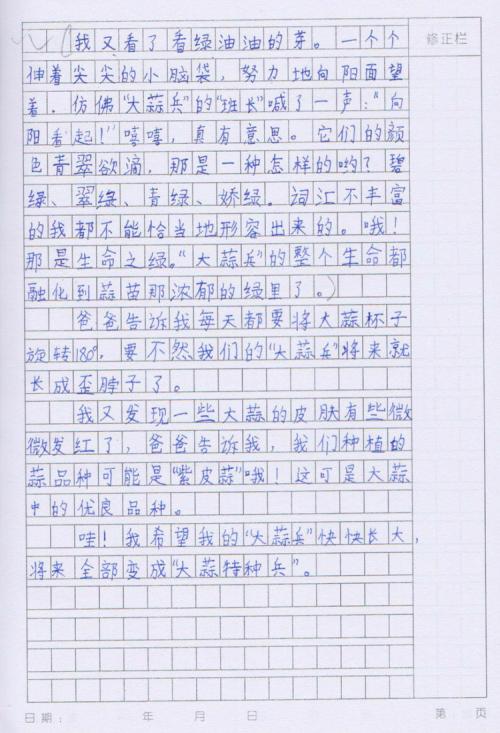 我又看了看绿油油的芽。一个个
修正栏
伸着尖尖的小脑袋，努力地向阳面望
着．仿佛“大蒜兵”的“班长”喊了一声：“向
阳看起！”嘻嘻，真有意思。它们的颜
色青翠欲滴，那是一种怎样的哟？碧
绿、翠绿、青绿、娇绿．词汇不丰富
的我都不能恰当地形容出来的。哦！
那是生命之绿。“大蒜兵”的整个生命都
融化到蒜苗那浓郁的绿里了。）
爸爸告诉我每天都要将大蒜杯子
旋转180°．要不然我们的“大蒜兵”将来就
长成歪脖子了。
我又发现一些大蒜的皮肤有些微
微发红了，爸爸告诉我，我们种植的
蒜品种可能是“紫皮蒜”哦！这可是大蒜
中的优良品种。
哇！我希望我的“大蒜兵”快快长大，
将来全部变成“大蒜特种兵”。
日期： 年 月 日 第 页